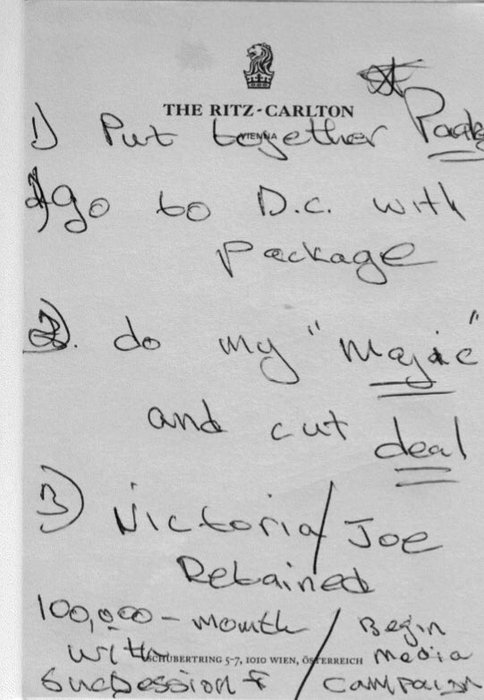 THE RITZ-CARLTON
VIENNA
1) Put together
go to D.C. with
package
2. do my "Magic"
and cut deal
3) Victoria/Joe
Retained
100,000 - month / Begin
with media
SCHUBERTRING 5-7, 1010 WIEN, ÖSTERREICH
campaign